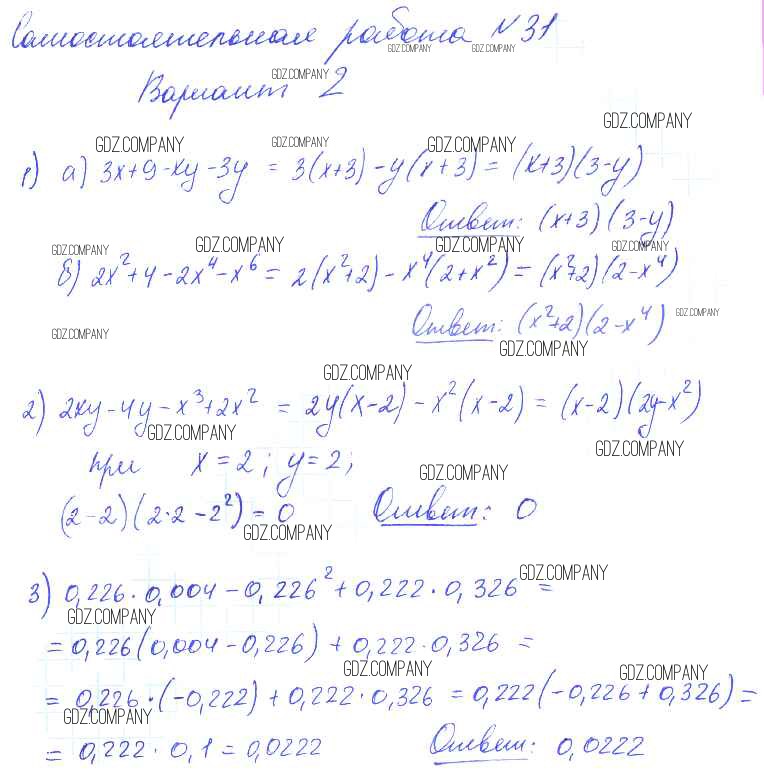 Самостоятельная работа №31
GDZ.COMPANY GDZ.COMPANY
GDZ.COMPANY
Вариант 2
GDZ.COMPANY
GDZ.COMPANY GDZ.COMPANY GDZ.COMPANY
1) а) 3x+9-xy-3y = 3(x+3)-y(x+3) = (x+3)(3-y)
Ответ: (x+3)(3-y)
GDZ.COMPANY GDZ.COMPANY GDZ.COMPANY GDZ.COMPANY
б) 2x²+4-2x⁴-x⁶ = 2(x²+2)-x⁴(2+x²) = (x²+2)(2-x⁴)
Ответ: (x²+2)(2-x⁴)
GDZ.COMPANY
GDZ.COMPANY GDZ.COMPANY
GDZ.COMPANY
2) 2xy-4y-x³+2x² = 2y(x-2)-x²(x-2) = (x-2)(2y-x²)
GDZ.COMPANY GDZ.COMPANY
при x=2; y=2;
GDZ.COMPANY
(2-2)(2·2-2²)=0 Ответ: 0
GDZ.COMPANY
GDZ.COMPANY
3) 0,226·0,004-0,226²+0,222·0,326 =
GDZ.COMPANY
= 0,226(0,004-0,226)+0,222·0,326 =
GDZ.COMPANY GDZ.COMPANY
= 0,226·(-0,222)+0,222·0,326 = 0,222(-0,226+0,326) =
GDZ.COMPANY
= 0,222·0,1 = 0,0222 Ответ: 0,0222